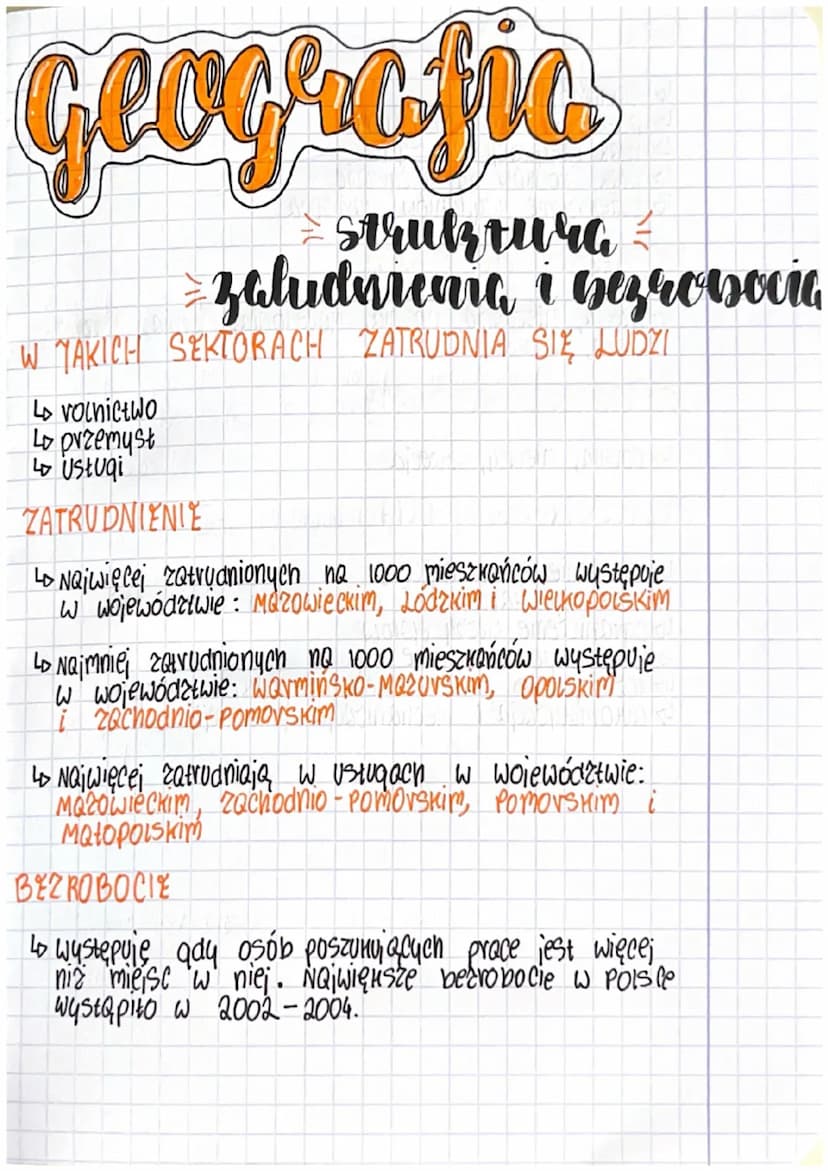 Geografia
struktura
zaludnienia i bezrobocia
W JAKICH SEKTORACH ZATRUDNIA SIĘ LUDZI
↳ rolnictwo
↳ przemysł
↳ usługi
ZATRUDNIENIE
↳ Najwięcej zatrudnionych na 1000 mieszkańców występuje
w województwie: Mazowieckim, Łódzkim i Wielkopolskim
↳ Najmniej zatrudnionych na 1000 mieszkańców występuje
w województwie: warmińsko-Mazurskim, opolskim
i zachodnio-pomorskim
↳ Najwięcej zatrudniają w usługach w województwie:
Mazowieckim, zachodnio-pomorskim, Pomorskim i
Małopolskim
BEZROBOCIE
↳ występuję gdy osób poszukujących prace jest więcej
niż miejsc w niej. Największe bezrobocie w Polsce
wystąpiło w 2002-2004.